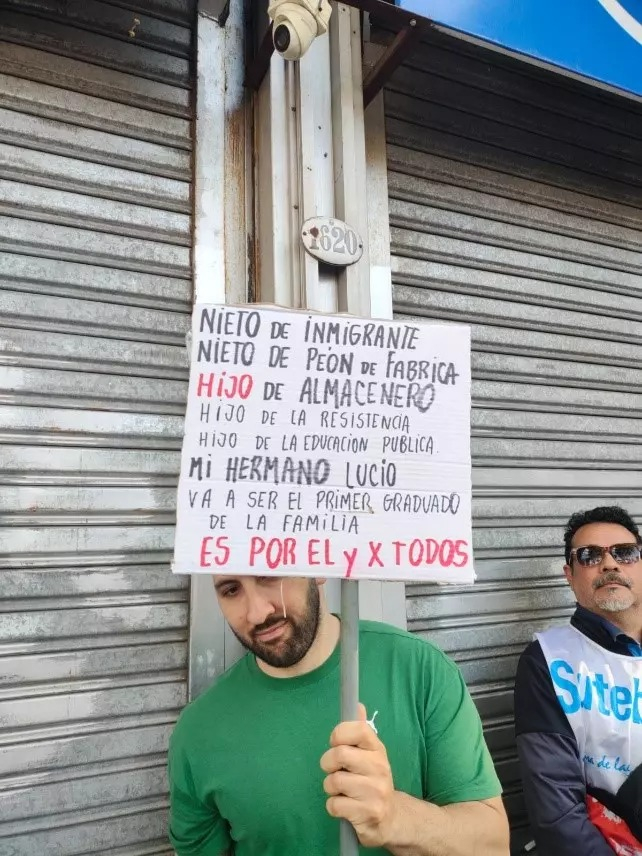 1620
NIETO DE INMIGRANTE
NIETO DE PEÓN DE FABRICA
HIJO DE ALMACENERO
HIJO DE LA RESISTENCIA
HIJO DE LA EDUCACION PUBLICA.
MI HERMANO LUCIO
VA A SER EL PRIMER GRADUADO
DE LA FAMILIA
ES POR EL y X TODOS
Suteb
de la